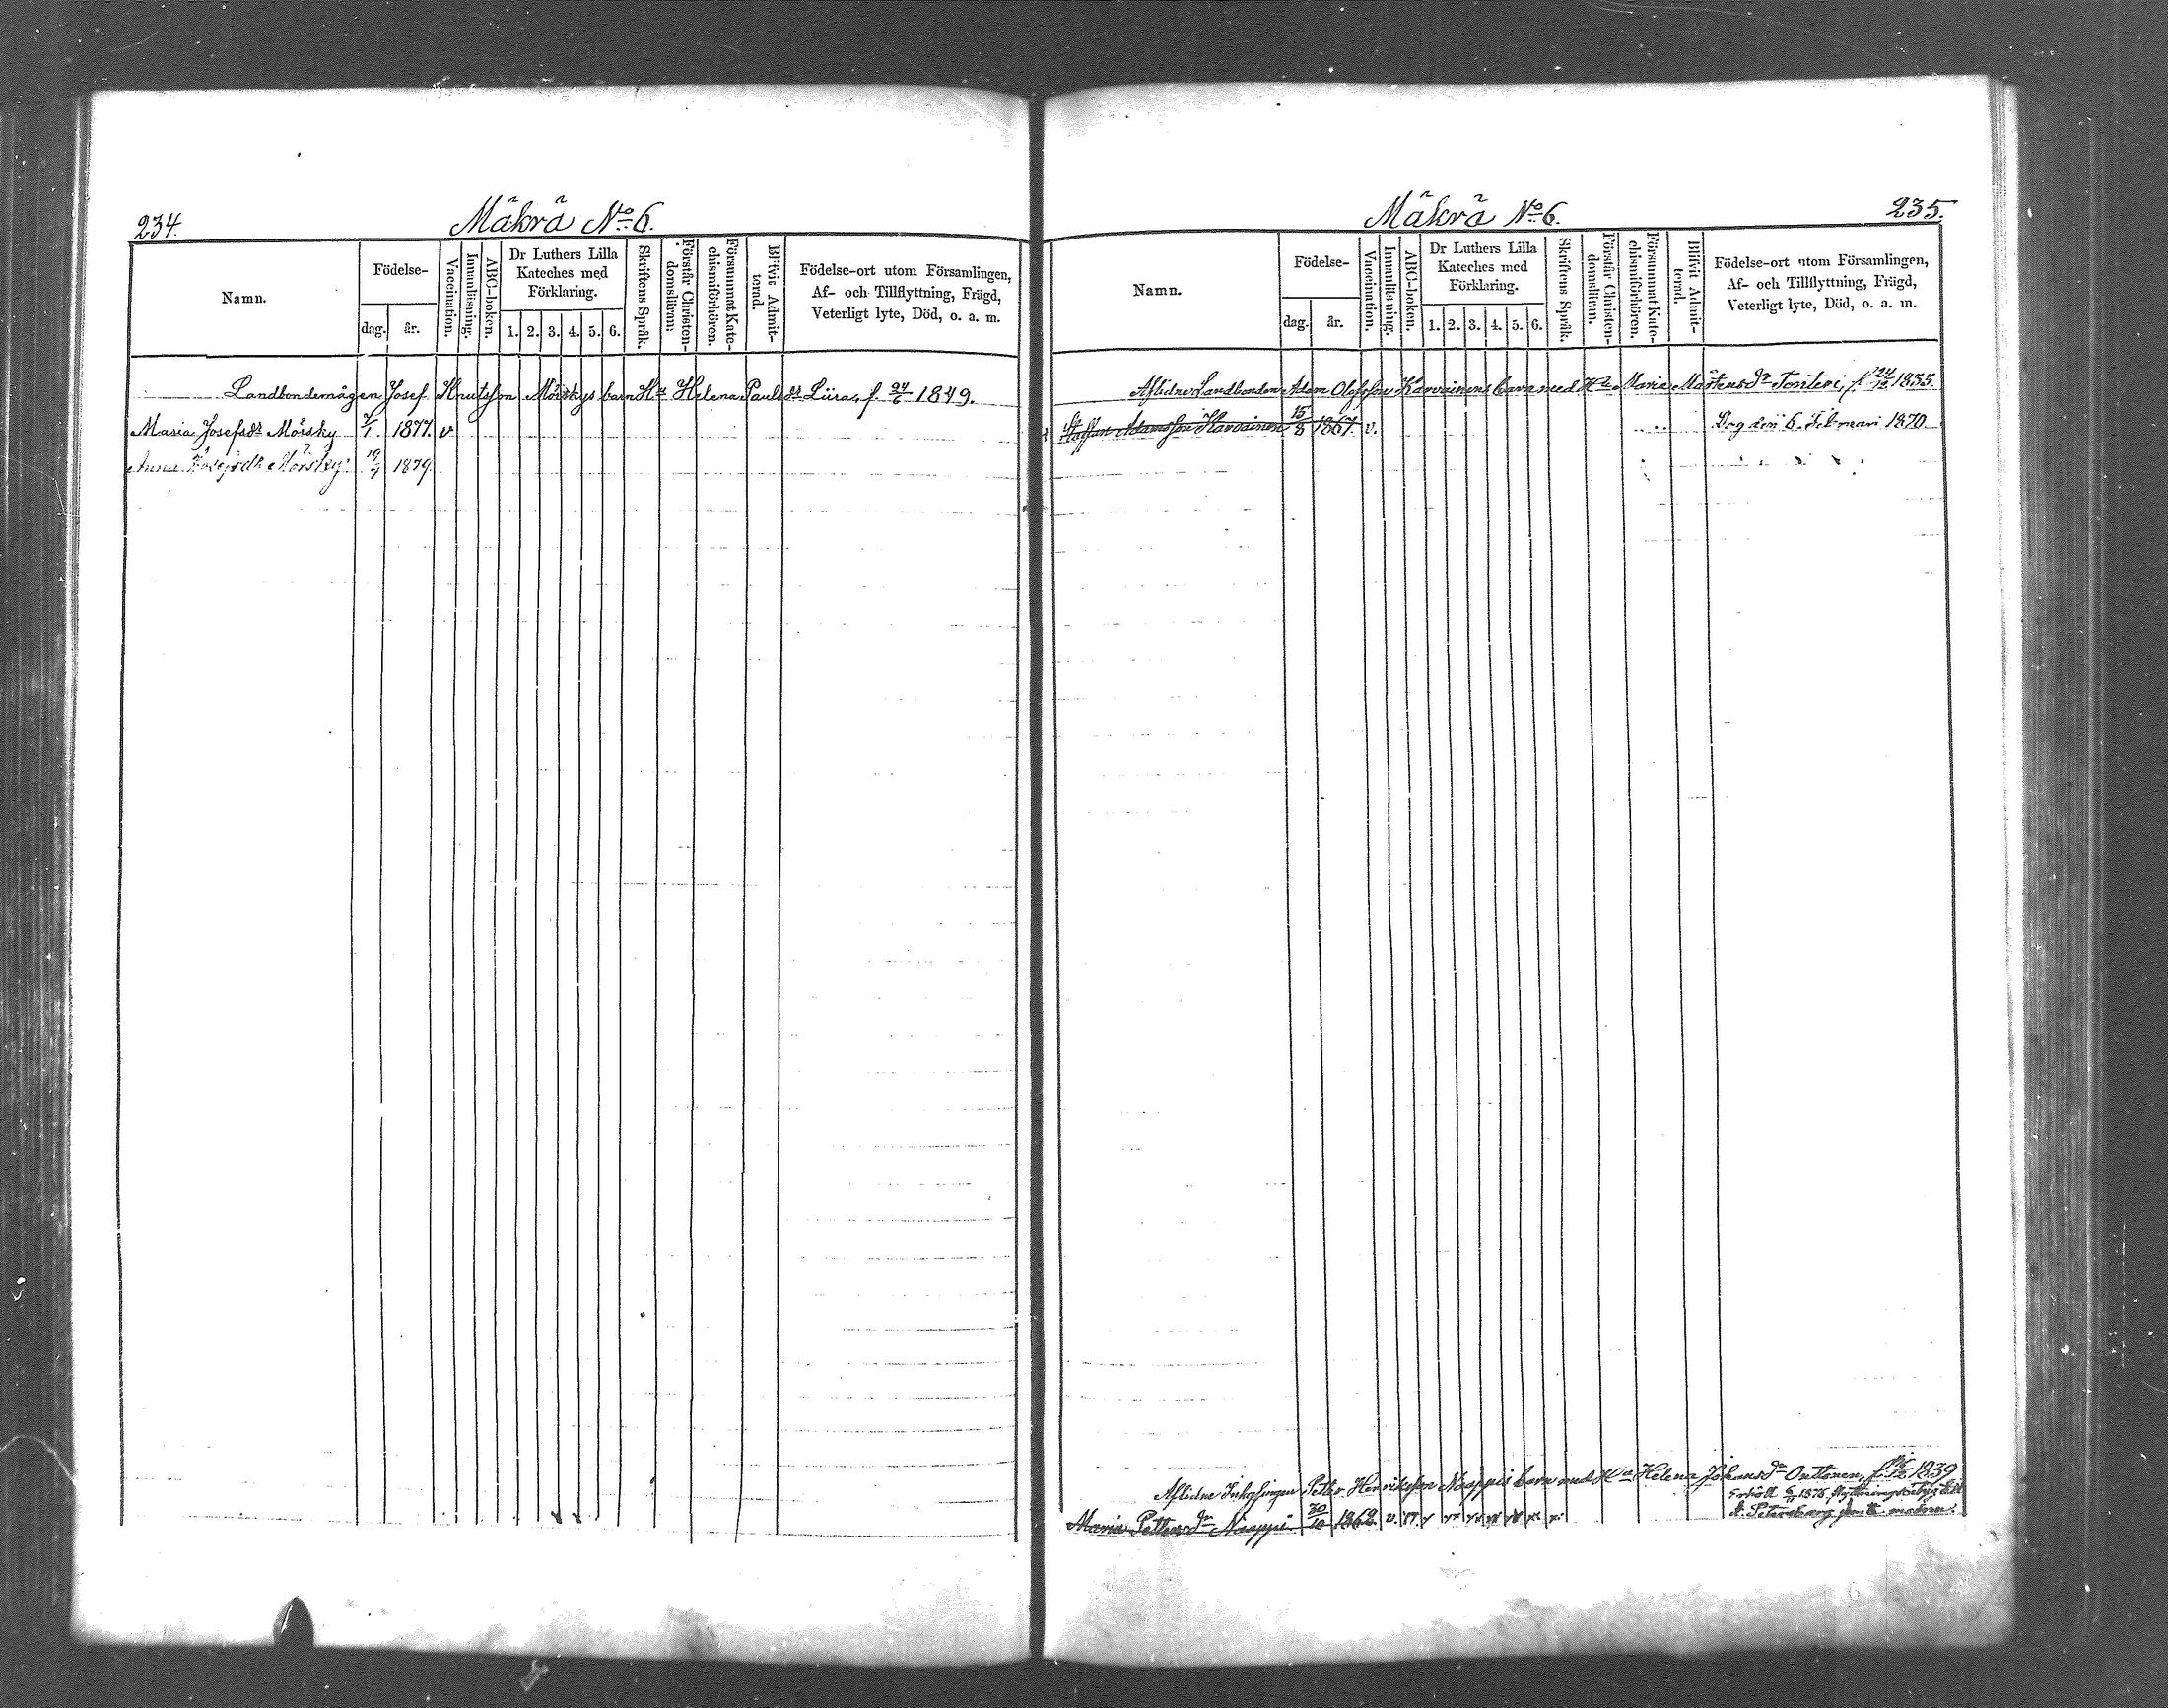 234.
Mäkrä No 6.
Namn.
Födelse-
dag.
år.
Vaccination.
Innanläsning.
ABC-boken.
Dr Luthers Lilla
Kateches med
Förklaring.
1. 2. 3. 4. 5. 6.
Skriftens Språk.
Förstår Christen-
domsläran.
Försummat Kate-
chismiförhören.
Blifvit Admit-
terad.
Födelse-ort utom Församlingen,
Af- och Tillflyttning, Frägd,
Veterligt lyte, Död, o. a. m.
Landbondemågen Josef Knutsson Mörskys barn H u Helena Pauls dr Liira, f. 24/6 1849.
Maria Josefsdr Mörsky 2/1. 1877. v
Anna Josefsdr Mörsky 19/7 1879.
235.
Mäkrä No 6.
Namn.
Födelse-
dag.
år.
Vaccination.
Innanläsning.
ABC-boken.
Dr Luthers Lilla
Kateches med
Förklaring.
1. 2. 3. 4. 5. 6.
Skriftens Språk.
Förstår Christen-
domsläran.
Försummat Kate-
chismiförhören.
Blifvit Admit-
terad.
Födelse-ort utom Församlingen,
Af- och Tillflyttning, Frägd,
Veterligt lyte, Död, o. a. m.
Aflidne Landbonden Adam Olofsson Karvainens barn med Maria Mårtens dr Tonteri, f. 24/12 1833.
Staffan Adamsson Karvainen 15/8 1867. v. Dog den 6 Februari 1870
Aflidne Inhysingen Petter Henriksson Naappis barn med Helena Johans dr Outtonen, f. 1839
Erhöll 1876 flyttningsbetyg till
Maria Petters dr Naappi 30/10 1862. v. St. Petersburg jemte modren.